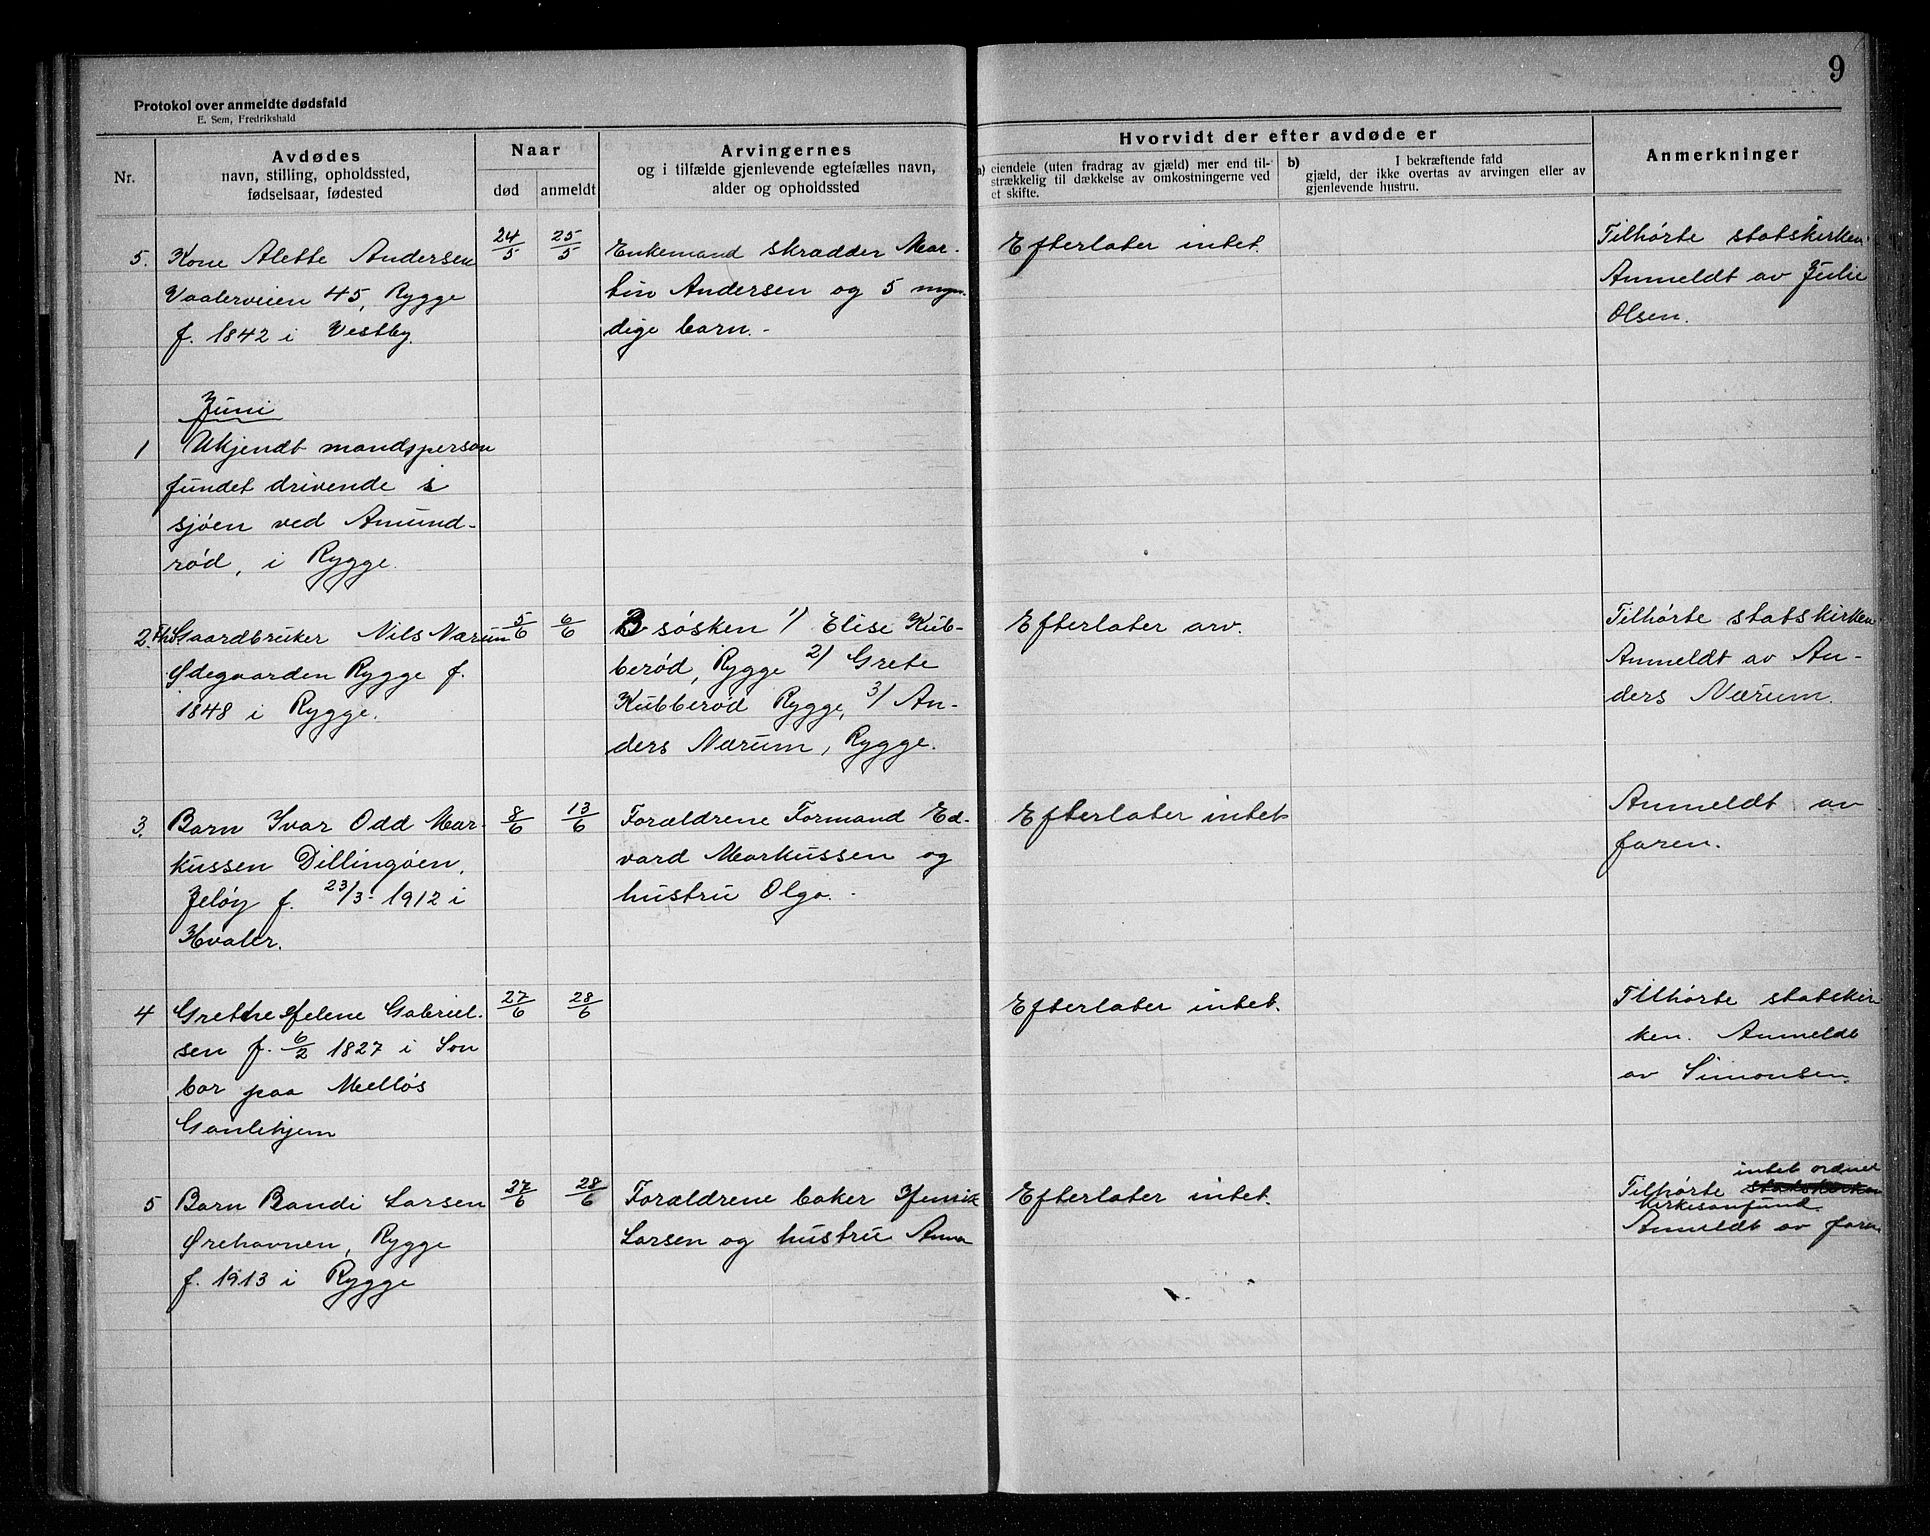 9
Protokol over anmeldte dødsfald
E. Sem, Fredrikshald
Nr.
Avdødes
navn, stilling, opholdssted,
fødselsaar, fødested
Naar
død
anmeldt
Arvingernes
og i tilfælde gjenlevende egtefælles navn,
alder og opholdssted
Hvorvidt der efter avdøde er
a) eiendele (uten fradrag av gjæld) mer end til-
strækkelig til dækkelse av omkostningerne ved
et skifte.
b) I bekræftende fald
gjæld, der ikke overtas av arvingen eller av
gjenlevende hustru.
Anmerkninger
5. Kone Alette Andersen
Vaalerveien 45, Rygge
f. 1842 i Vestby.
24/5
25/5
Enkemand skrædder Mar-
tin Andersen og 5 myn-
dige barn.-
Efterlater intet.
Tilhørte statskirken.
Anmeldt av Julie
Olsen.
Juni
1 Ukjendt mandsperson
fundet drivende i
sjøen ved Amund-
rød, i Rygge.
2. Gaardbruker Nils Nærum
Ødegaarden Rygge f.
1848 i Rygge.
5/6
6/6
3 søsken 1) Elise Kub-
berød, Rygge 2/ Grete
Kubberød Rygge, 3/ An-
ders Nærum, Rygge.
Efterlater arv.
Tilhørte statskirken
Anmeldt av An-
ders Nærum.
3. Barn Ivar Odd Mar-
kussen Dillingøen,
Jeløy f. 23/3-1912 i
Hvaler.
8/6
13/6
Forældrene Formand Ed-
vard Markussen og
hustru Olga.
Efterlater intet
Anmeldt av
faren.
4 Grethe Helene Gabriel-
sen f. 6/2 1827 i Son
bor paa Melløs
Gamlehjem
27/6
28/6
Efterlater intet.
Tilhørte statskir
ken. Anmeldt
av Simonsen.
5 Barn Randi Larsen
Ørehavnen, Rygge
f. 1913 i Rygge
27/6
28/6
Forældrene baker Henrik
Larsen og hustru Anna
Efterlater intet.
intet ordnet
Tilhørte statskirken
kirkesamfund
Anmeldt av faren